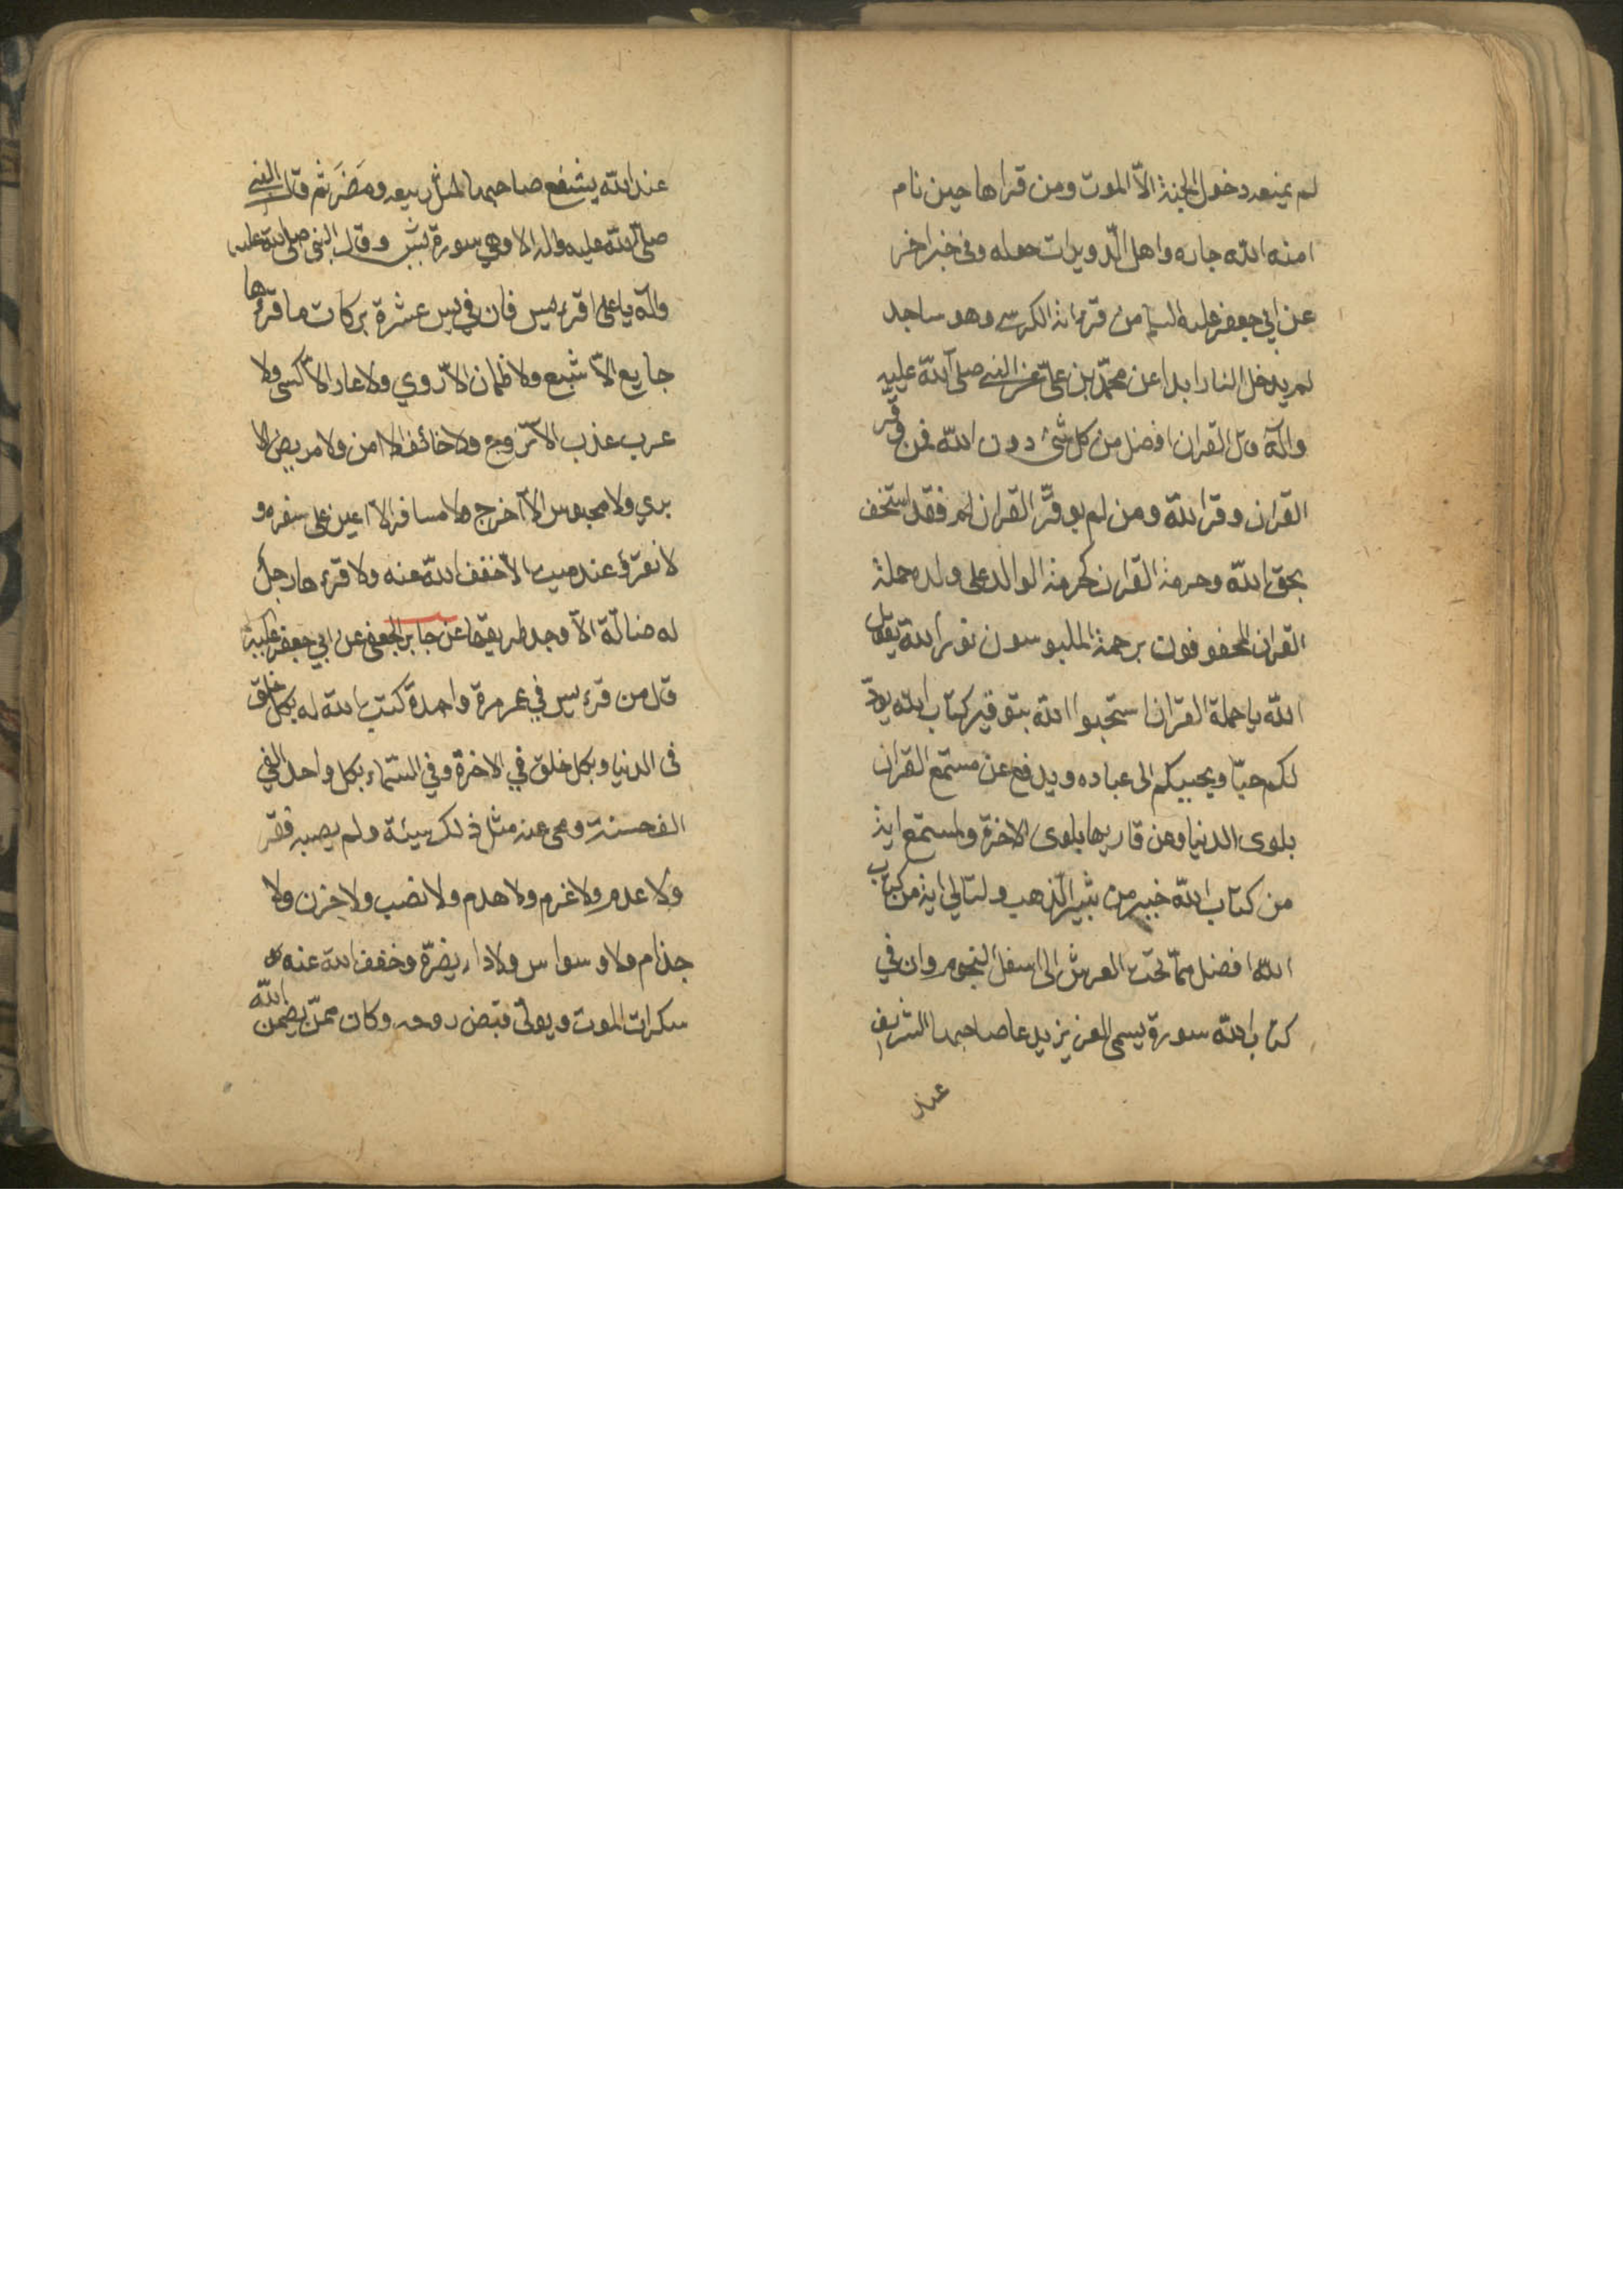 لم يمنعه دخول الجنة الّا الموت ومن قراها حين نام
امنه الله جاره واهل الدويرات حوله وفى خبر اخر
عن ابي جعفر عليه السلم من قرء اية الكرسي وهو ساجد
لم يدخل النار ابدا عن محمّد بن علىّ عن النبي صلى الله عليه
وآله قال القران افضل من كل شئ دون الله فمن وقّر
القران وقر الله ومن لم يوقّر القران لم فقد استخف
بحق الله وحرمة القران كحرمة الوالد على ولده حملة
القران المحفوفون برحمة الملبوسون نور الله يقول
الله يا حملة القران استحبوا الله بتوقير كتاب الله يزدّ
لكم حبّا ويحببكم الى عباده ويدفع عن مستمع القران
بلوى الدنيا وعن قاريها بلوى الاخرة ولمستمع اية
من كتاب الله خير من ثبير الذهب ولتالي اية من كتاب
الله افضل ممّا تحت العرش الى اسفل التخوم وان في
كتاب الله سورة يسمى العزيز يدعا صاحبها الشريف
عند
عند الله يشفع صاحبها لمثل ربيعه ومضَرَ ثم قال النبي
صلّى الله عليه واله الا وهي سورة يس وقال النبى صلى الله عليه
وآله يا على اقرء يس فان في يس عشرة بركات ما قرءها
جايع الّا شبع ولا ظمان الّا روي ولا عار الّا كسى ولا
عزب الّا تزوج ولا خائف الا امن ولا مريض الا
بري ولا محبوس الّا اخرج ولا مسافر الّا اعين على سفره و
لا تقرؤ عند ميت الّا خفف الله عنه ولا قرءها رجل
له ضالّة الّا وجد طريقها عن جابر الجعفى عن ابي جعفر عليه
قال من قرء يس في عمره مرة واحدة كتب الله له بكل خلق
فى الدنيا وبكل خلق في الاخرة وفي السّماء بكل واحد الفي
الف حسنة ومحى عنه مثل ذلك سيئة ولم يصبه فقر
ولا عدم ولا غرم ولا هدم ولا نصب ولا حزن ولا
جذام ولا وسواس ولا داء يضرّه وخفف الله عنه
سكرات الموت ويولّى قبض روحه وكان ممّن يضمن الله